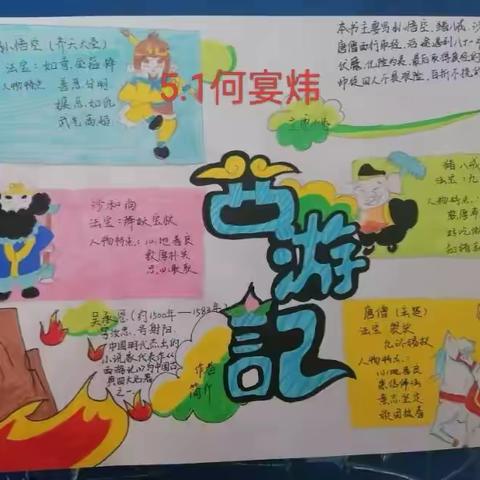 孙悟空（齐天大圣）
法宝：如意金箍棒
人物特点 善恶分明
嫉恶如仇
武艺高强
5.1何宴炜
本书主要写孙悟空、猪八戒、沙
唐僧西行取经，
沙和尚
法宝：降妖宝杖
人物特点：心地善良
敦厚朴实
忠心耿耿
猪八戒
法宝：九
人物特点：
西游記
吴承恩（约1500年—1582年）
字汝忠，号射阳
中国明代杰出的
小说家代表作《
西游记》为中国古
典四大名著
之一
作者
简介
唐僧（玄奘）
法宝 袈裟
九环锡杖
人物特点：
心地善良
崇信佛法
意志坚定